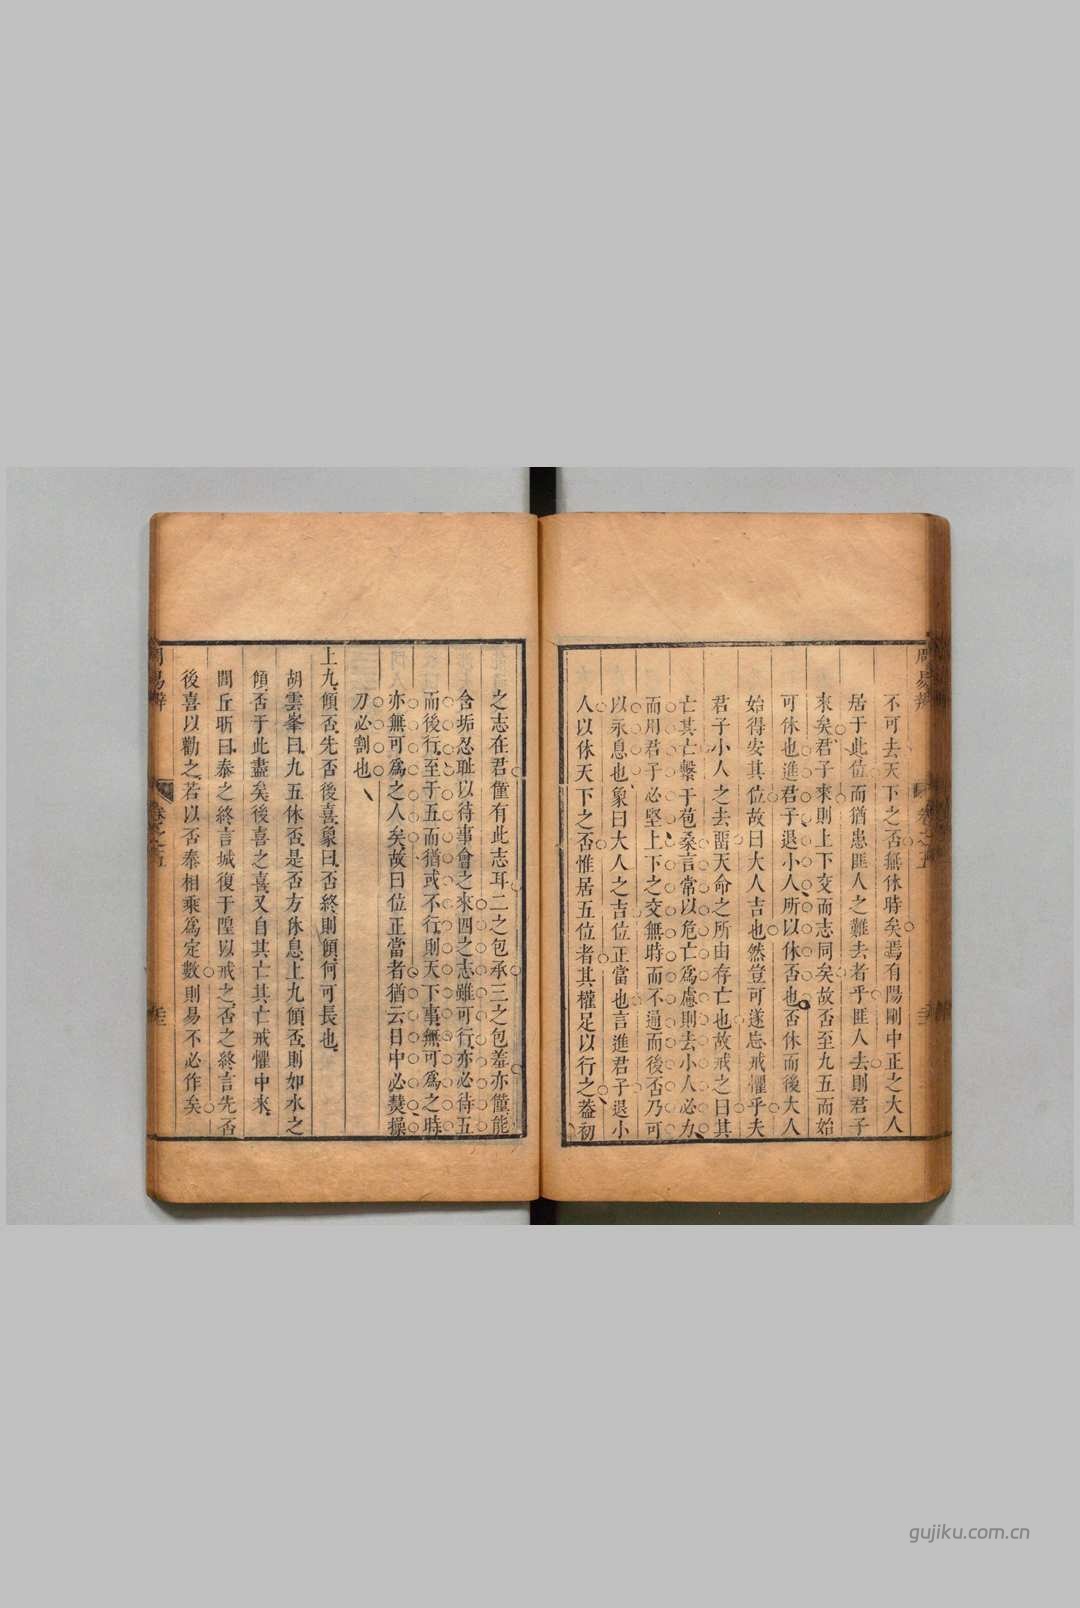 不可去天下之否無休時矣焉有陽剛中正之大人
居于此位而猶患匪人之難去者乎匪人去則君子
來矣君子來則上下交而志同矣故否至九五而始
可休也進君子退小人所以休否也否休而後大人
始得安其位故曰大人吉也然豈可遂忘戒懼乎夫
君子小人之去畱天命之所由存亡也故戒之曰其
亡其亡繫于苞桑言常以危亡爲慮則去小人必力
而用君子必堅上下之交無時而不通而後否乃可
以永息也象曰大人之吉位正當也言進君子退小
人以休天下之否惟居五位者其權足以行之葢初
之志在君僅有此志耳二之包承三之包羞亦僅能
含垢忍耻以待事會之來四之志雖可行亦必待五
而後行至于五而猶或不行則天下事無可爲之時
亦無可爲之人矣故曰位正當者猶云日中必熭操
刀必割也
上九傾否先否後喜象曰否終則傾何可長也
胡雲峯曰九五休否是否方休息上九傾否則如水之
傾否于此盡矣後喜之喜又自其亡其亡戒懼中來
閭丘昕曰泰之終言城復于隍以戒之否之終言先否
後喜以勸之若以否泰相乘爲定數則易不必作矣
周易辨
卷之五
gujiku.com.cn